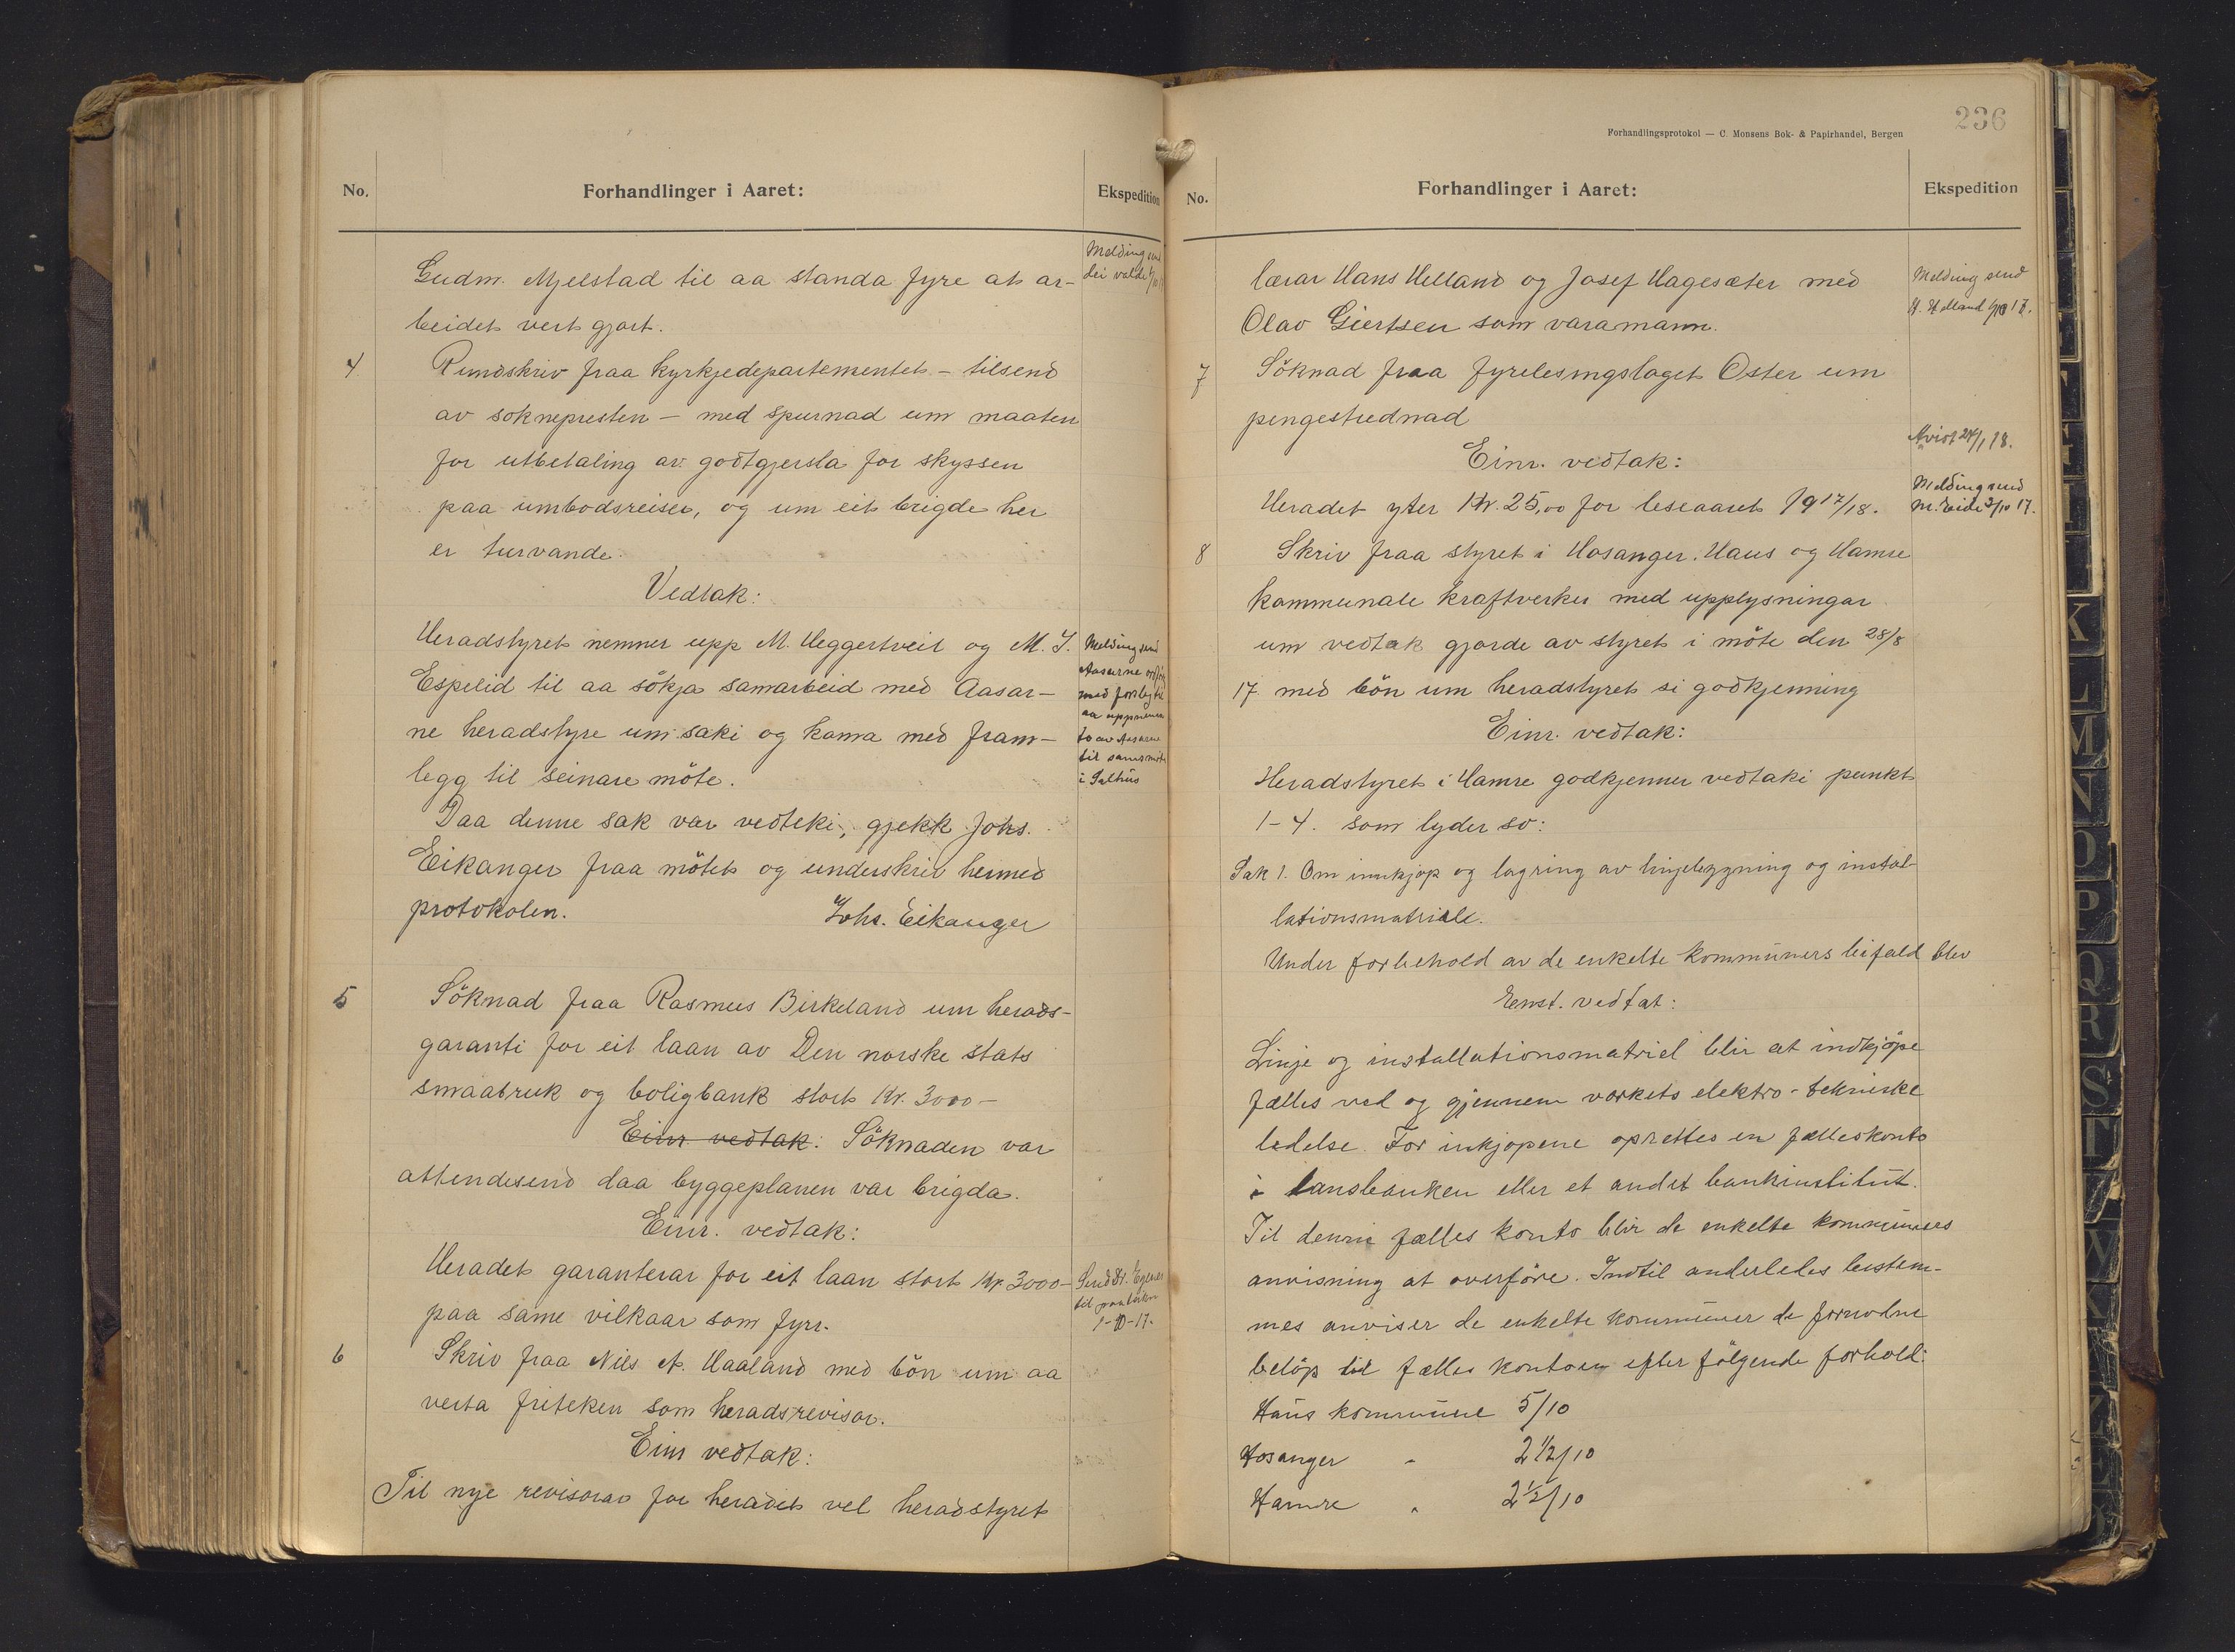 No.
Forhandlinger i Aaret:
Ekspedition
Gudm. Mjelstad til aa standa fyre at ar-
beidet vert gjort.
Melding send
dei valde
4
Rundskriv fraa kyrkjedepartementet - tilsend
av soknepresten - med spurnad um maaten
for utbetaling av godtgjersla for skyssen
paa umbodsreiser, og um eit brigde her
er turvande.
Vedtak:
Heradstyret nemner upp M. Heggertveit og M. J.
Espelid til aa sökja samarbeid med Aasar-
ne heradstyre um saki og koma med fram-
legg til seinare möte.
Melding send
Aasarne
med forslag til
aa uppnemna
to av Aasarne
til samsmöte
i Salhus
Daa denne sak var vedteki, gjekk Johs.
Eikanger fraa mötet og underskriv hermed
protokolen.
Johs. Eikanger
5
Söknad fraa Rasmus Birkeland um herads-
garanti for eit laan av Den norske stats
smaabruk og boligbank stort Kr. 3000 -
Einr. vedtak: Söknaden var
attendesend daa byggeplanen var brigda.
Einr. vedtak:
Heradet garanterar for eit laan stort Kr. 3000 -
paa same vilkaar som fyrr.
Send
til
1-10-17.
6
Skriv fraa Nils A. Haaland med bön um aa
verta friteken som heradsrevisor.
Einr vedtak:
Til nye revisorar for heradet vel heradstyret
236
Forhandlingsprotokol — C. Monsens Bok- & Papirhandel, Bergen
No.
Forhandlinger i Aaret:
Ekspedition
lærar Hans Helland og Josef Hagesæter med
Olav Giertsen som varamann.
Melding send
H. Helland 1/10 17.
7
Söknad fraa fyrelesingslaget Oster um
pengestudnad
Einr. vedtak:
Heradet yter Kr. 25,00 for leseaaret 1917/18.
Avist 24/1 18.
Melding send
M. Eide 3/10 17.
8
Skriv fraa styret i Hosanger. Haus og Hamre
kommunale kraftverker med upplysningar
um vedtak gjorde av styret i möte den 28/8
17 med bön um heradstyret si godkjenning
Einr. vedtak:
Heradstyret i Hamre godkjenner vedtaki punkt
1-4. som lyder so:
Sak 1. Om innkjøp og lagring av linjebygning og instal-
lationsmatriale.
Under forbehold av de enkelte kommuners bifald blev
Enst. vedtat:
Linje og installationsmatriel blir at indkjøpe
fælles ved og gjennem verkets elektro-tekniske
ledelse. For inkjøpene oprettes en fælleskonto
i lansbanken eller et andet bankinstitut.
Til denne fælles konto blir de enkelte kommuners
anvisning at overføre. Indtil anderledes bestem-
mes anviser de enkelte kommuner de fornødne
beløp til fælles kontoen efter følgende forhold:
Haus kommune 5/10
Hosanger " 2 1/2/10
Hamre " 2 1/2/10